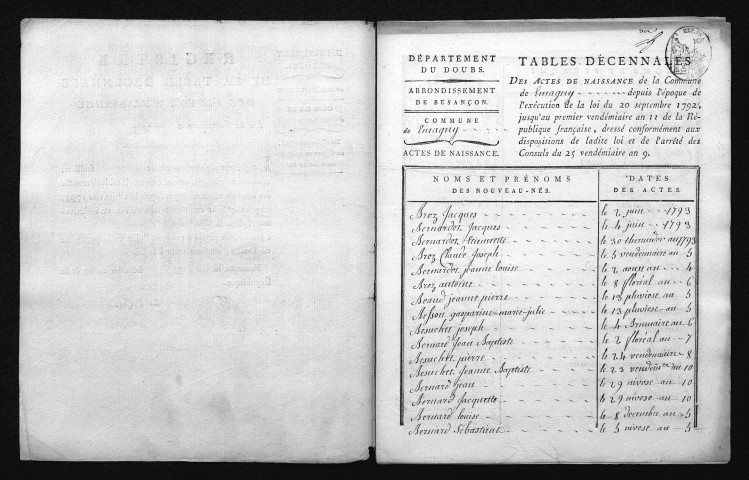 DÉPARTEMENT
DU DOUBS.
ARRONDISSEMENT
DE BESANÇON.
COMMUNE
de Emagny
ACTES DE NAISSANCE.
TABLES DÉCENNALES
DES ACTES DE NAISSANCE de la Commune
de Emagny depuis l'époque de
l'exécution de la loi du 20 septembre 1792,
jusqu'au premier vendémiaire an 11 de la Ré-
publique française, dressé conformément aux
dispositions de ladite loi et de l'arrêté des
Consuls du 25 vendémiaire an 9.
NOMS ET PRÉNOMS
DES NOUVEAU-NÉS.
DATES
DES ACTES.
Broz Jacques le 2 juin 1793
Bernardot Jacques le 4 juin 1793
Bernardot le 30 thermidor an 1793
Broz Claude Joseph le 5 vendemiaire an 5
Bernardot jeanne louise le 2 aoust an 4
Broz antoine le 8 floréal an 6
Beaud jeanne pierre le 13 pluviose an 5
Besson gasparine marie julie le 13 pluviose an 5
Besuchet joseph le 4 Brumaire an 6
Bernard Jean Baptiste le 2 floreal an 7
Besuchet pierre le 24 vendemiaire 8
Besuchet Jeanne Baptiste le 23 vendem.re an 10
Bernard jean le 29 nivose an 10
Bernard Jacquette le 29 nivose an 10
Bernard louise le 8 decembre an 5
Bernard Sébastient le 5 nivose an 5